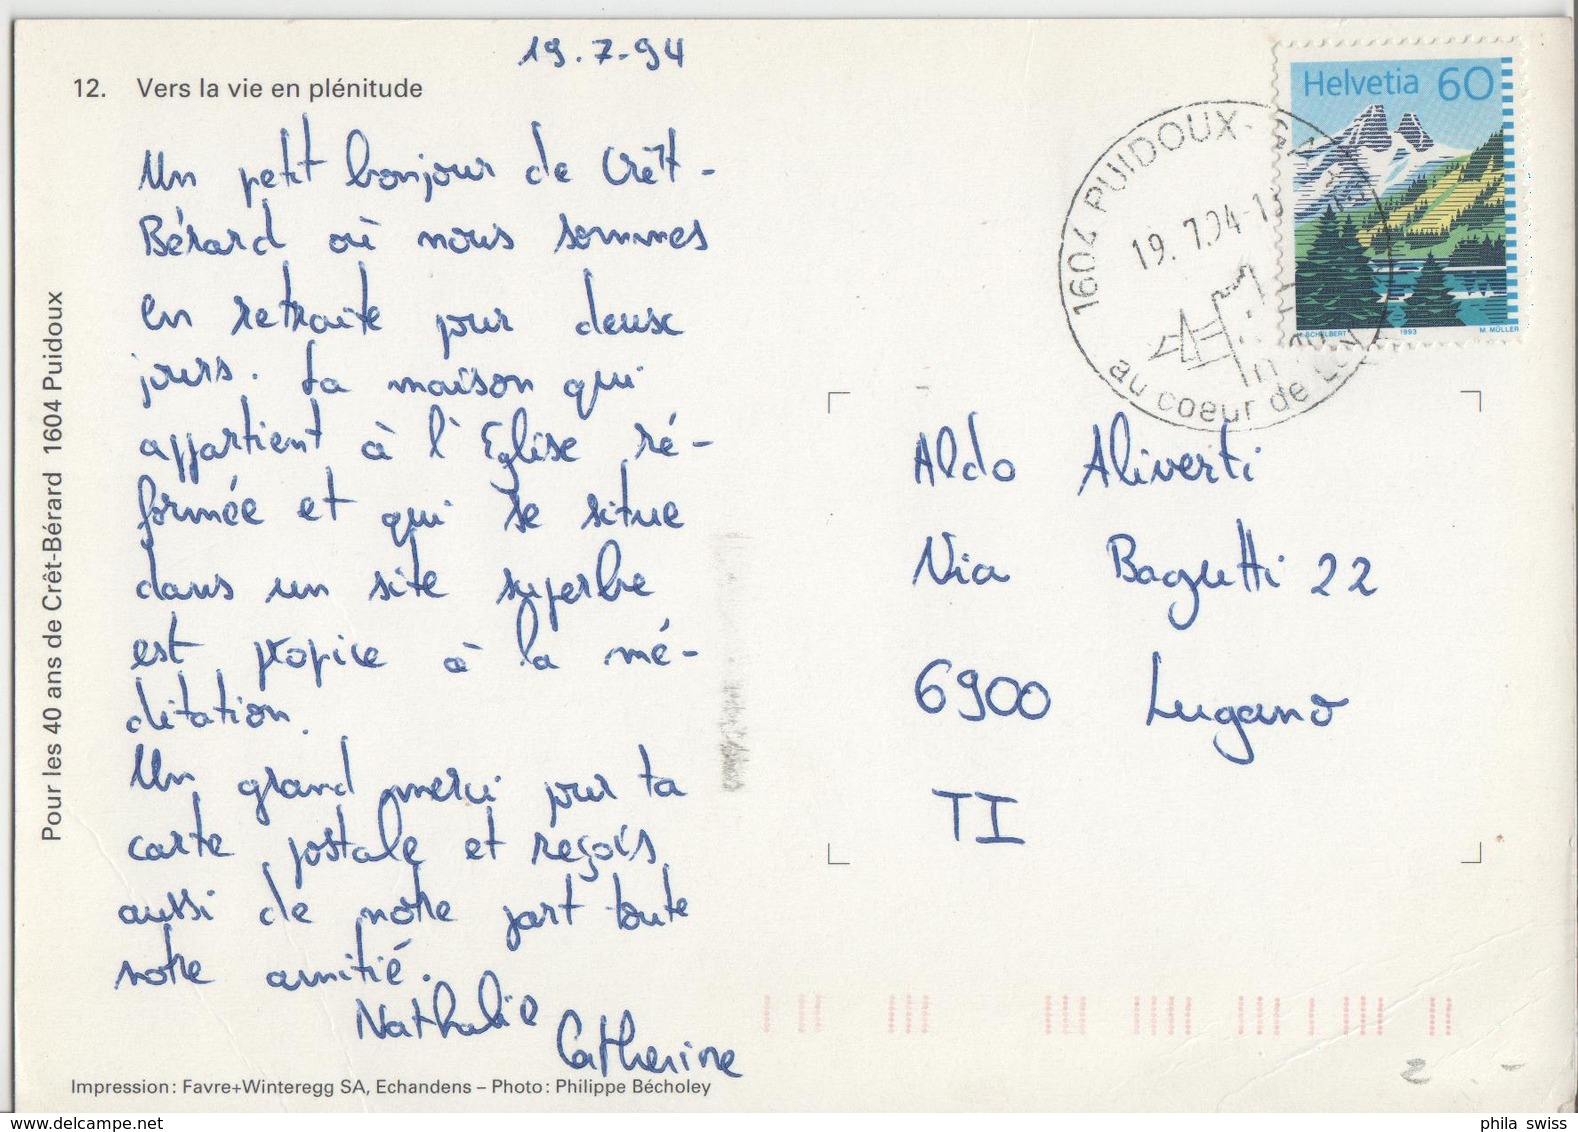 19.7.94
12. Vers la vie en plénitude
Un petit bonjour de Crêt-
Bérard où nous sommes
en retraite pour deux
jours. La maison qui
appartient à l'Eglise ré-
formée et qui se situe
dans un site superbe
est propice à la mé-
ditation.
Un grand merci pour ta
carte postale et reçois
aussi de notre part toute
notre amitié.
Nathalie
Catherine
Pour les 40 ans de Crêt-Bérard 1604 Puidoux
Impression: Favre+Winteregg SA, Echandens – Photo: Philippe Bécholey
Helvetia 60
H. SCHELBERT 1993 M. MÜLLER
1604 PUIDOUX-
19.7.94-1
au coeur de
Aldo Aliverti
Via Bagutti 22
6900 Lugano
TI
2 -
phila swiss